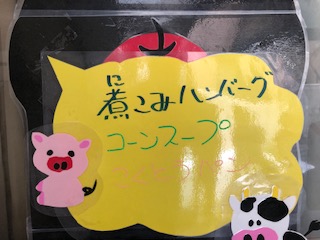 煮こみハンバーグ
コーンスープ